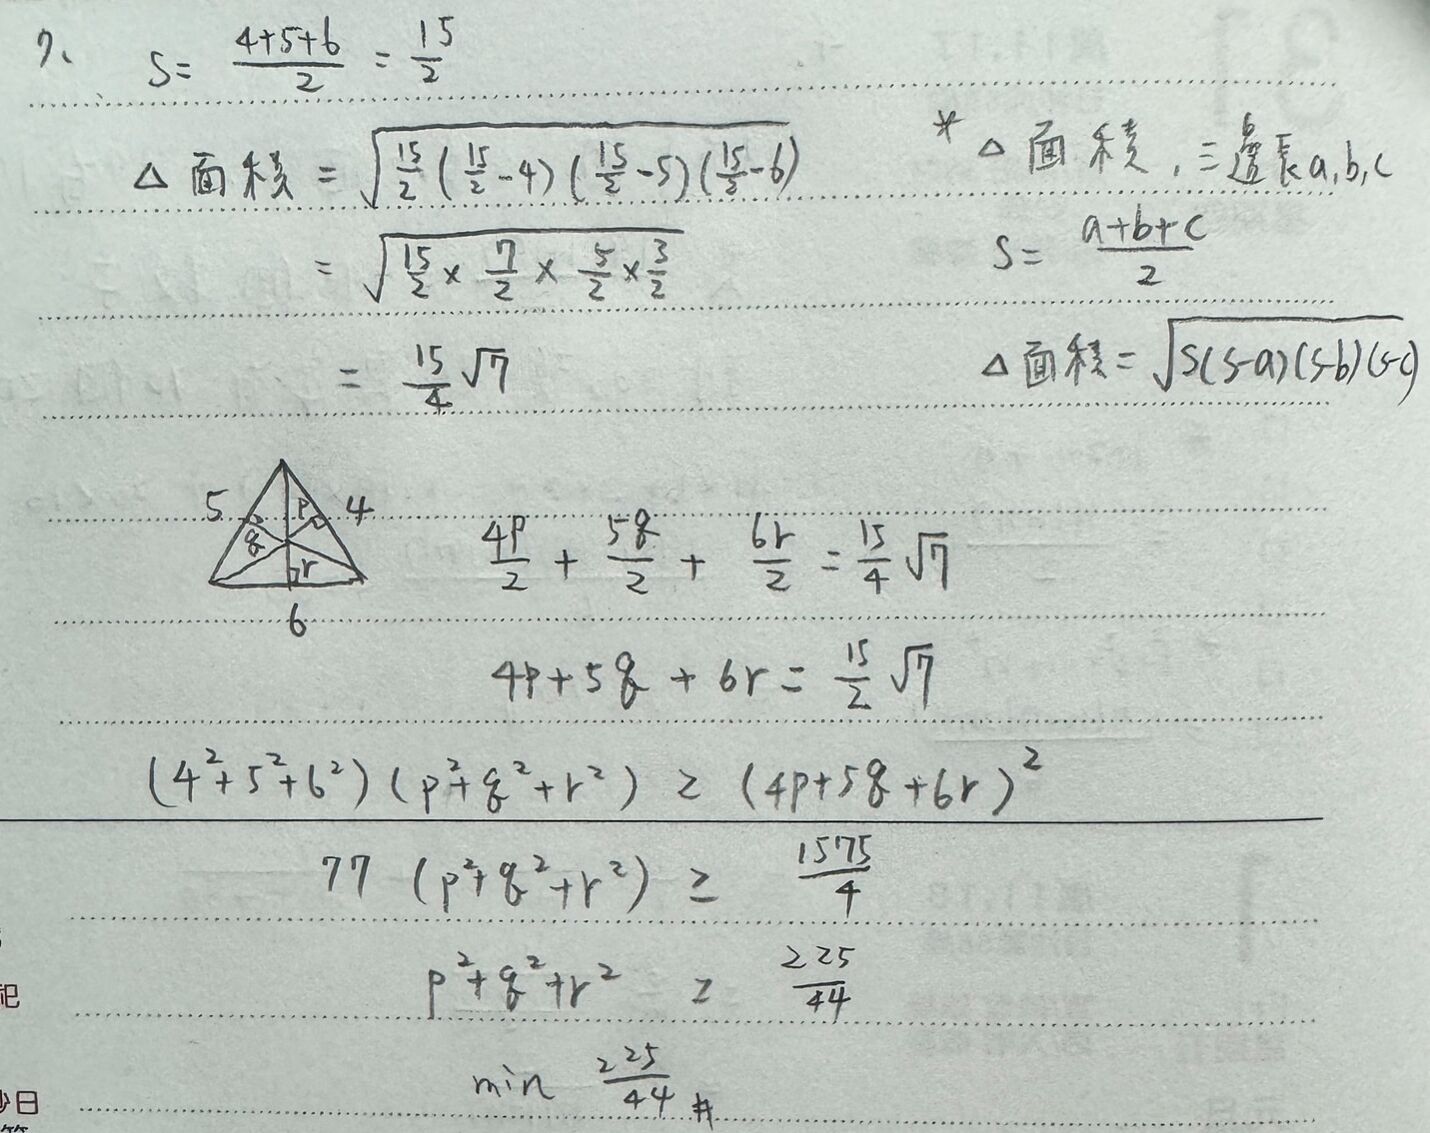 7、 S = (4+5+6)/2 = 15/2
△面積 = √(15/2 (15/2 - 4) (15/2 - 5) (15/2 - 6))
= √(15/2 × 7/2 × 5/2 × 3/2)
= 15/4 √7
* △面積，三邊長a,b,c
S = (a+b+c)/2
△面積 = √(S(S-a)(S-b)(S-c))
5 p 4
q r
6
4p/2 + 5q/2 + 6r/2 = 15/4 √7
4p + 5q + 6r = 15/2 √7
(4²+5²+6²) (p²+q²+r²) ≥ (4p+5q+6r)²
77 (p²+q²+r²) ≥ 1575/4
p²+q²+r² ≥ 225/44
min 225/44 #